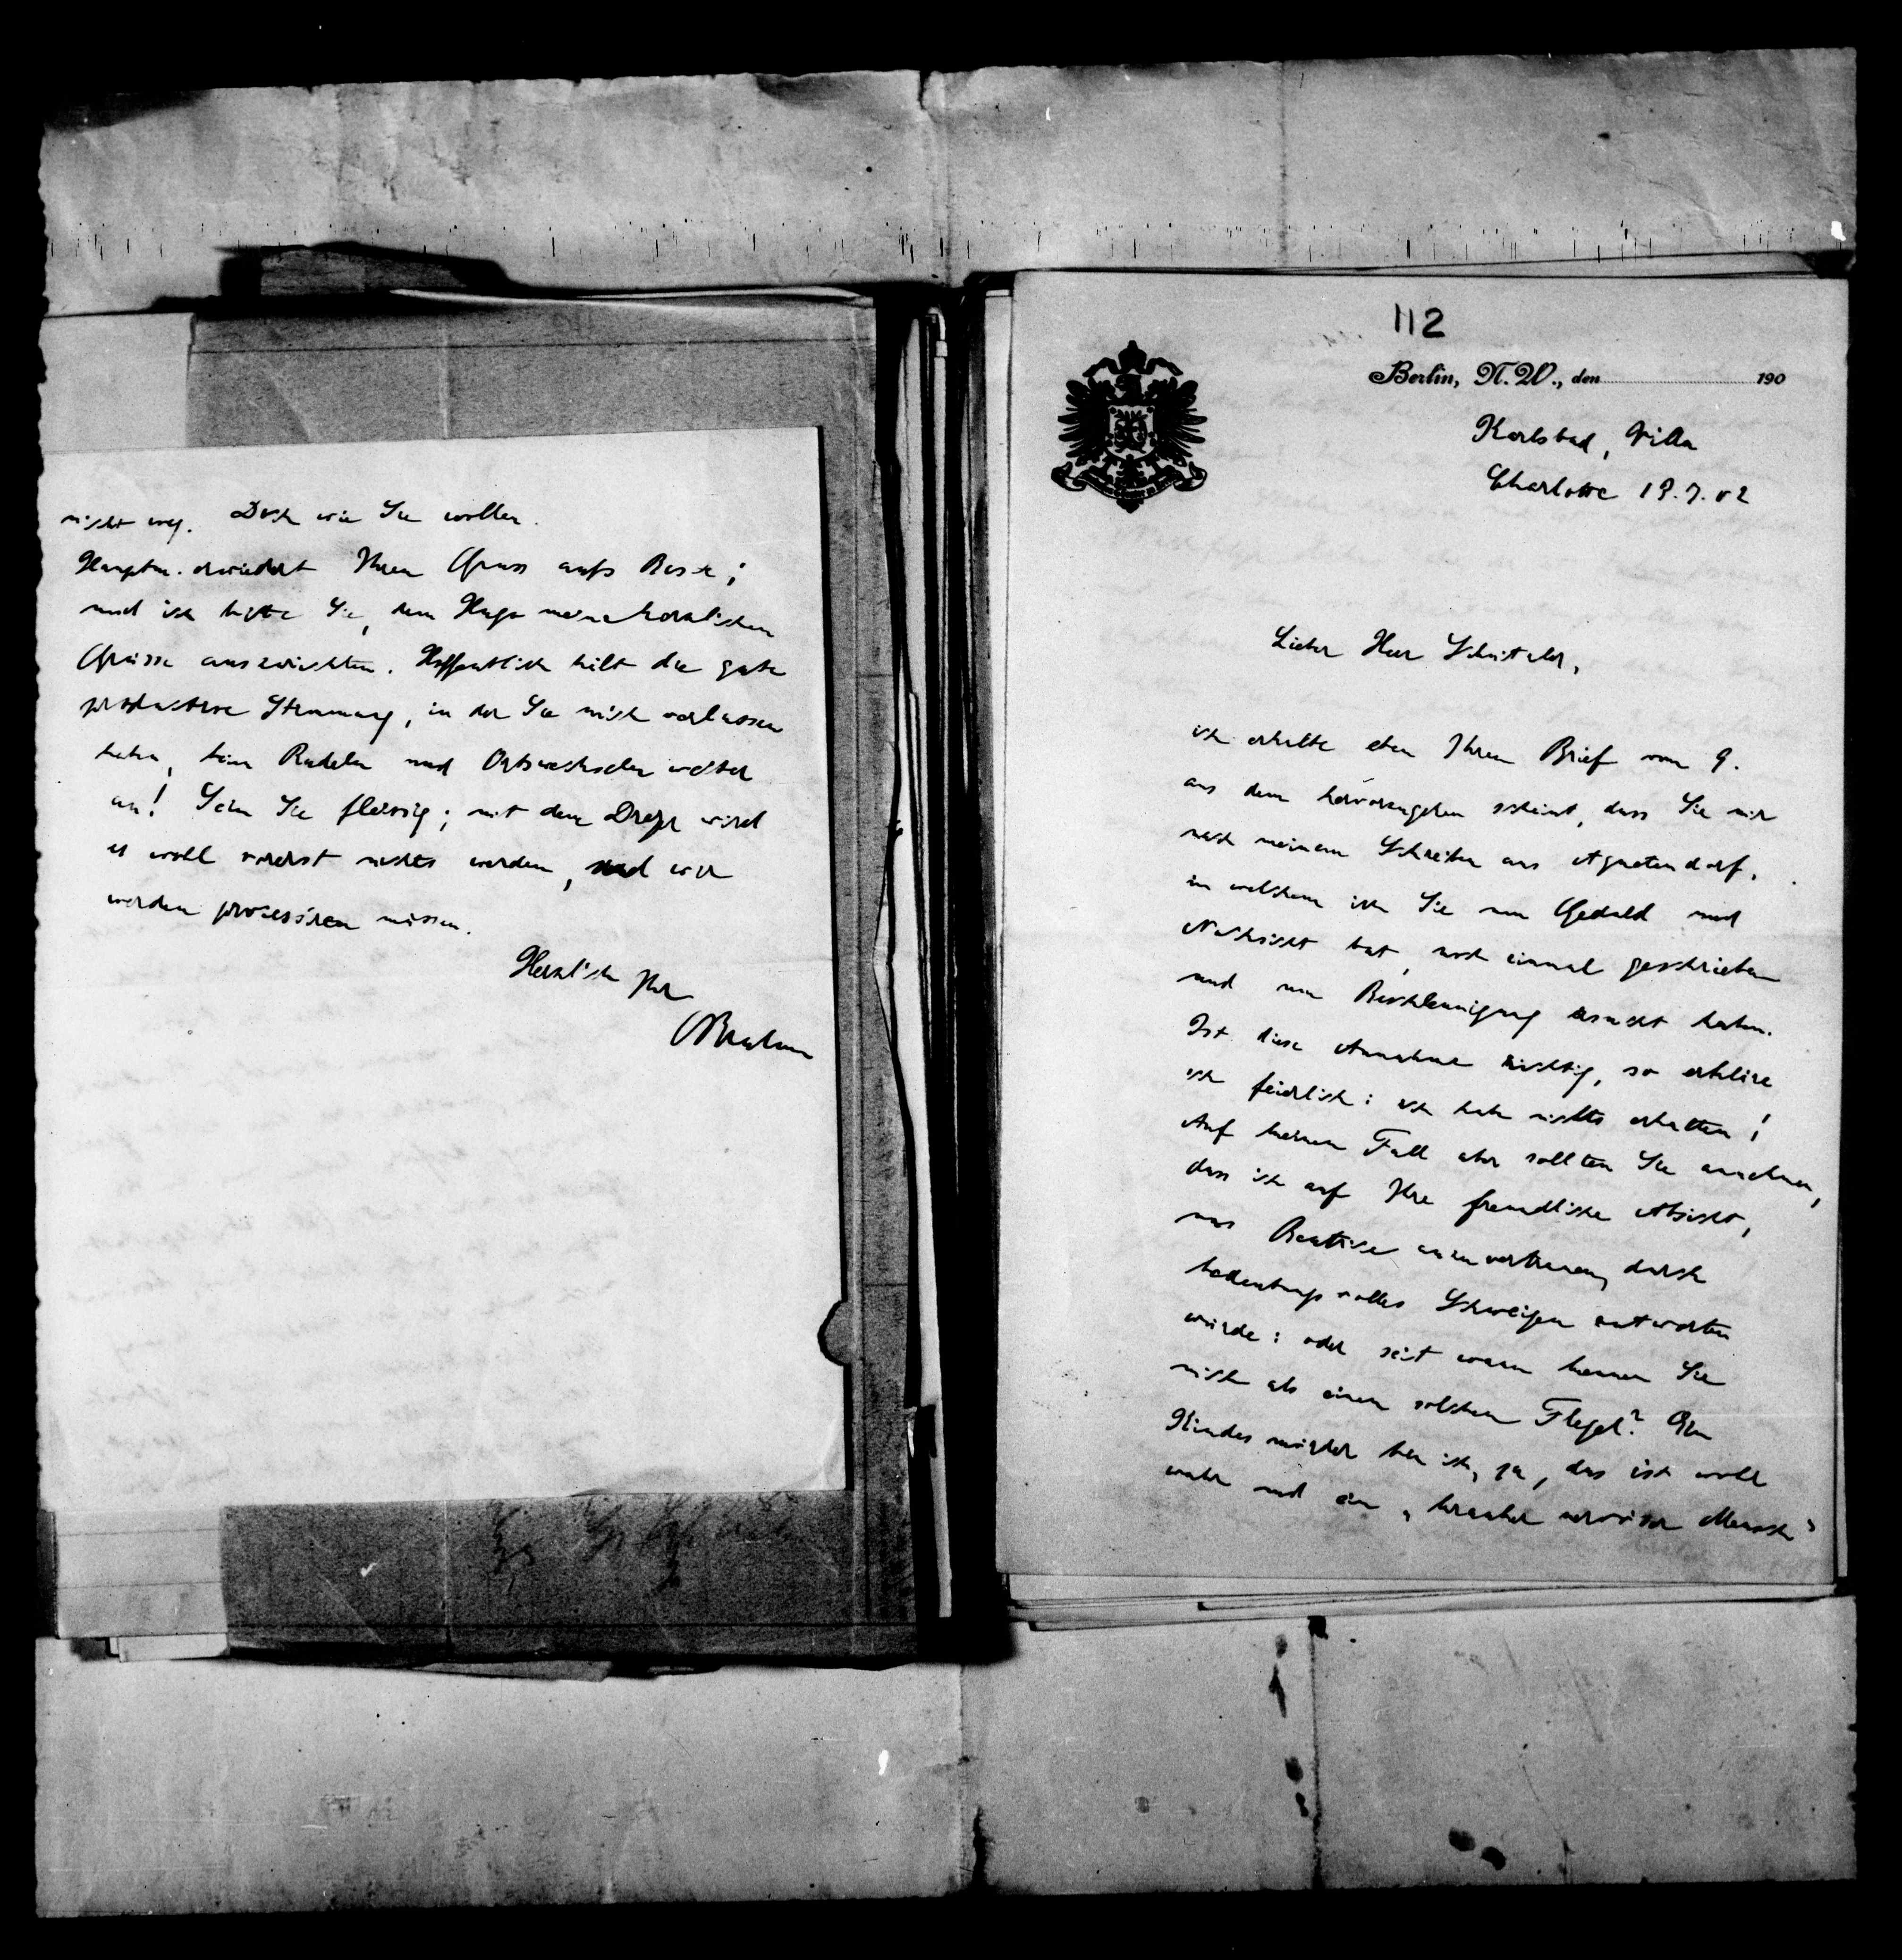 nicht weg. Doch wie Sie wollen.
Hauptm. erwiedert Ihren Gruss aufs Beste;
und ich bitte Sie, dem Hugo meine herzlichen
Grüsse auszurichten. Hoffentlich hält die gute
productive Stimmung, in der Sie mich verlassen
haben, beim Radeln und Ortswechseln weiter
an! Sein Sie fleissig; mit dem Dreyer wird
es wohl vorerst nichts werden, und wir
werden processiren müssen.
Herzlich Ihr
OBrahm
112
Berlin, N.W., den 190
Karlsbad, Villa
Charlotte 19.7.02
Lieber Herr Schnitzler,
ich erhalte eben Ihren Brief vom 9.
aus dem hervorzugehen scheint, dass Sie mir
nach meinem Schreiben aus Agnetendorf,
in welchem ich Sie um Geduld und
Nachsicht bat, noch einmal geschrieben
und um Beschleunigung ersucht haben.
Ist diese Annahme richtig, so erkläre
ich feierlich: ich habe nichts erhalten!
Auf keinen Fall aber sollten Sie annehmen,
dass ich auf Ihre freundliche Absicht,
uns Beatrice anzuvertrauen, durch
bedeutungsvolles Schweigen antworten
würde: oder seit wann kennen Sie
mich als einen solchen Flegel? Ein
Kindesmörder bin ich, ja, das ist wohl
wahr und ein „kranker nervöser Mensch"